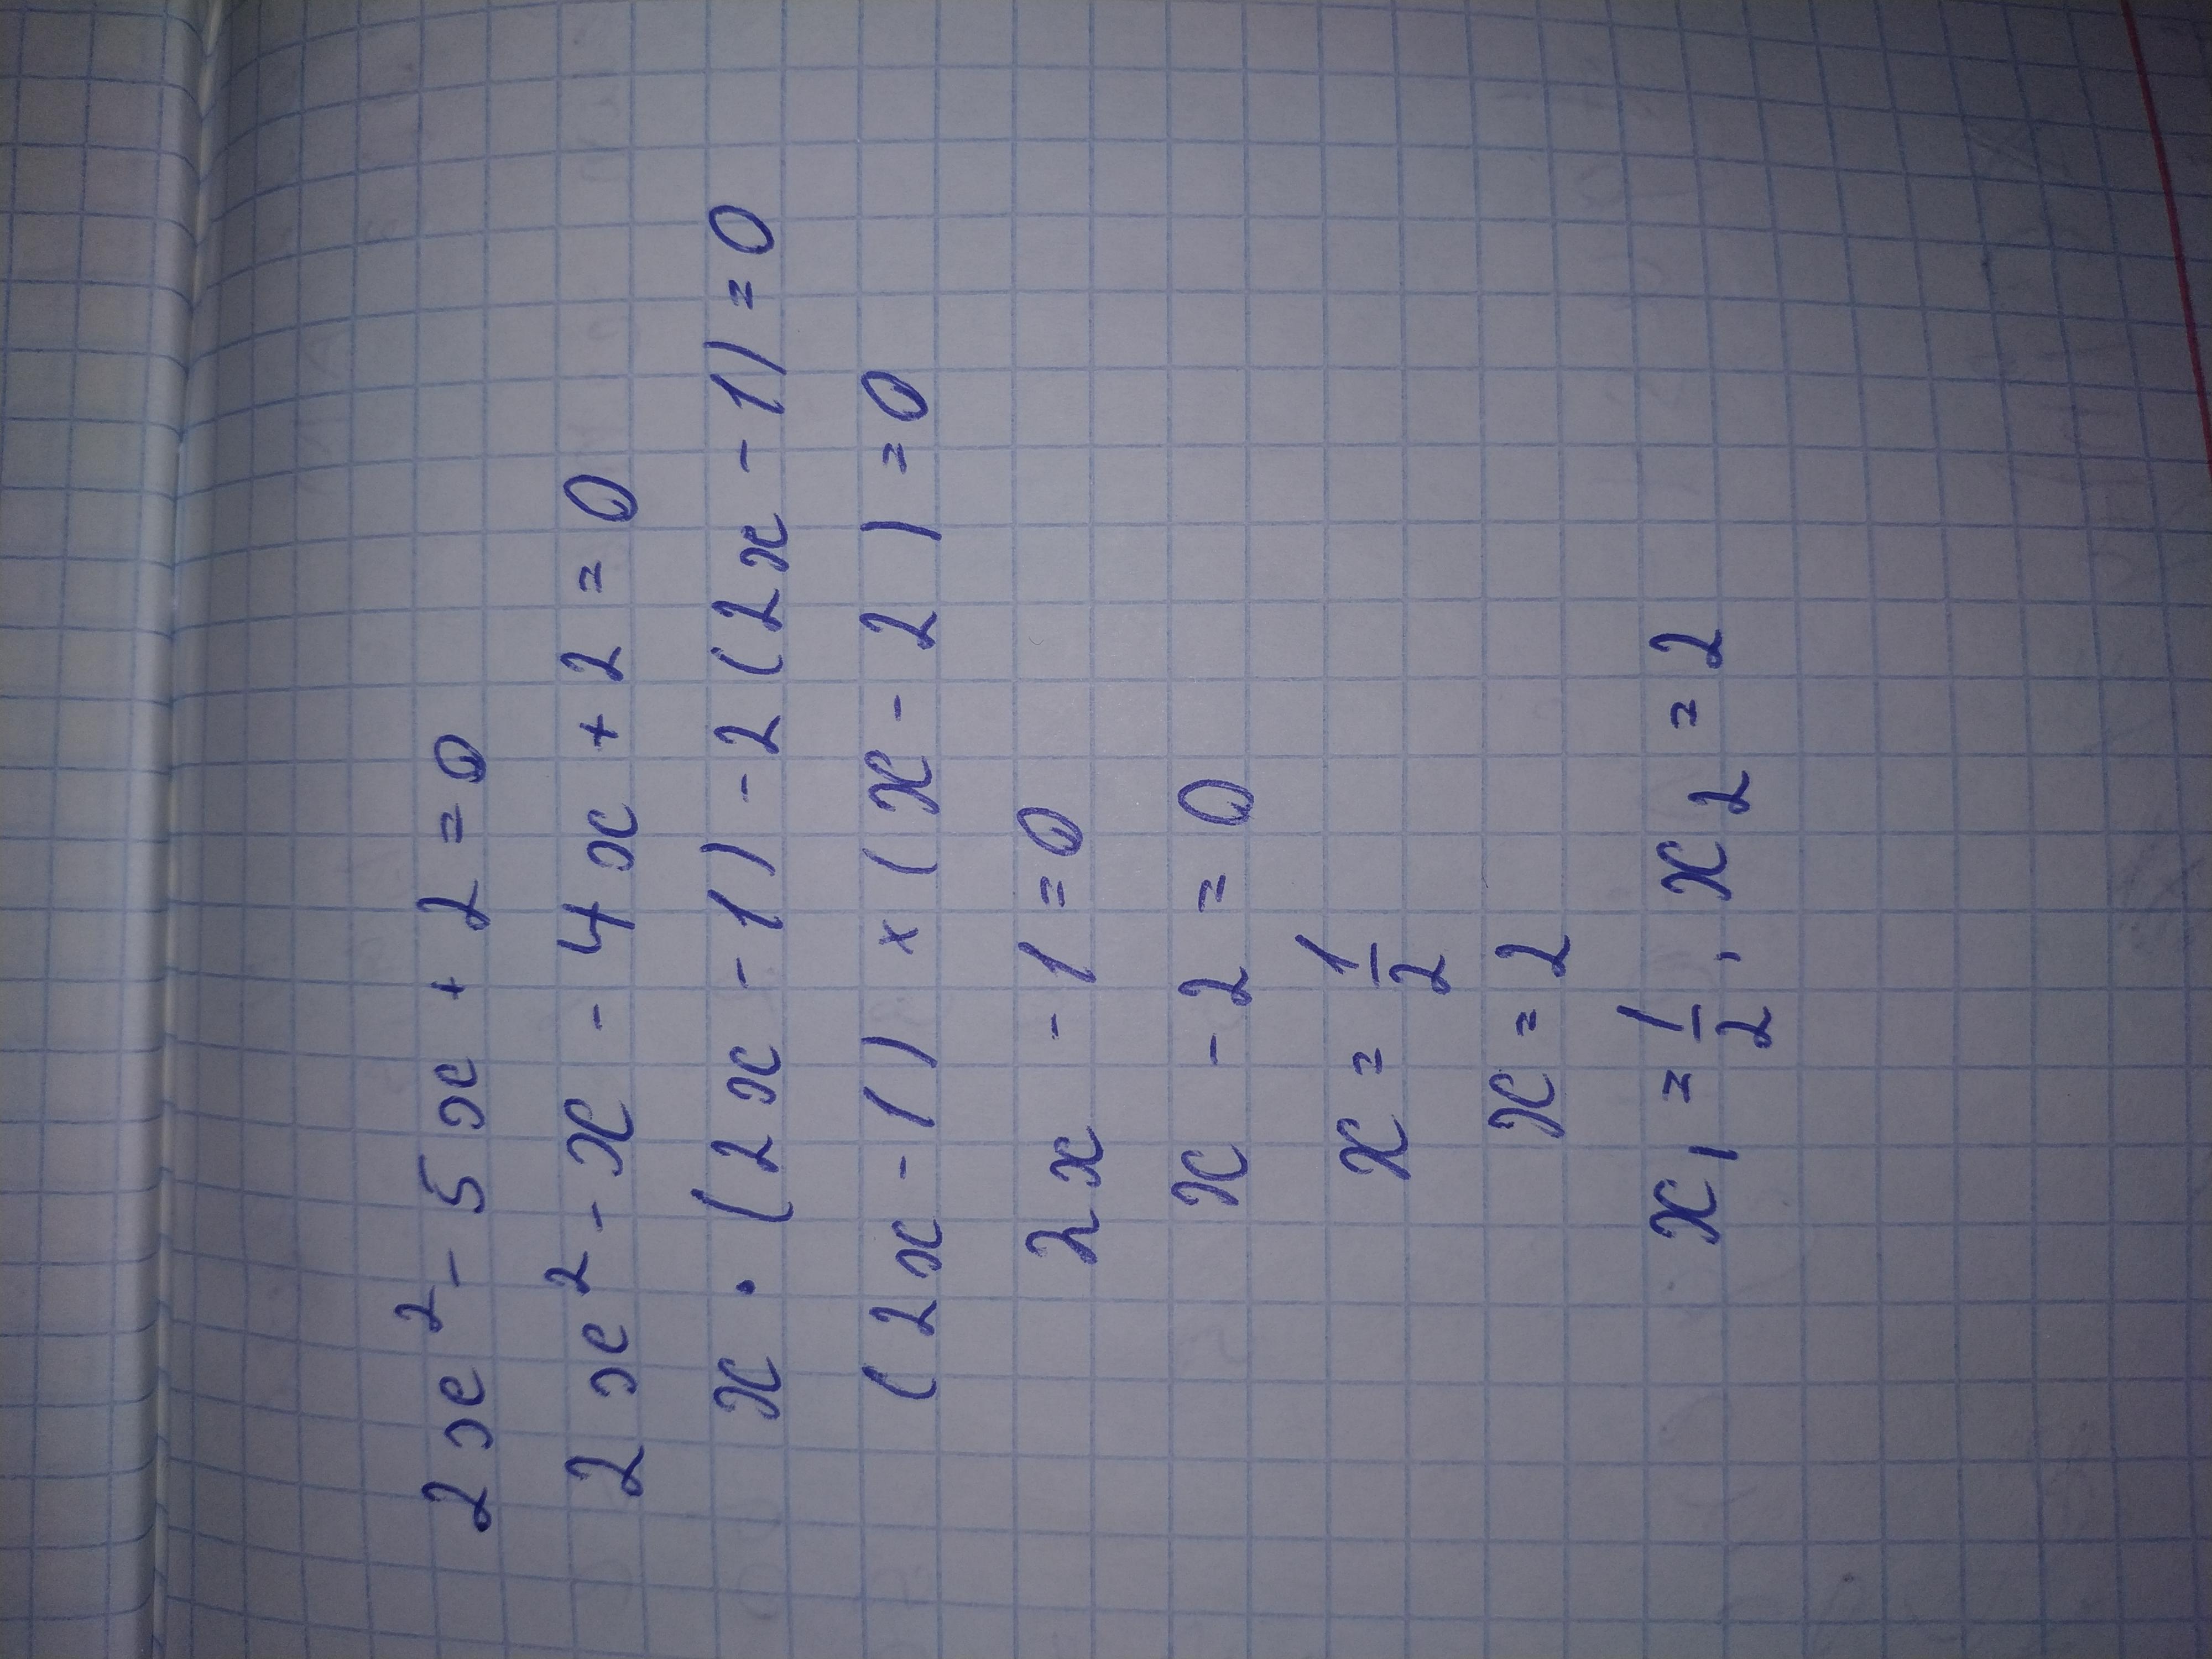 2x² - 5x + 2 = 0
2x² - x - 4x + 2 = 0
x · (2x - 1) - 2(2x - 1) = 0
(2x - 1) × (x - 2) = 0
2x - 1 = 0
x - 2 = 0
x = 1/2
x = 2
x₁ = 1/2, x₂ = 2